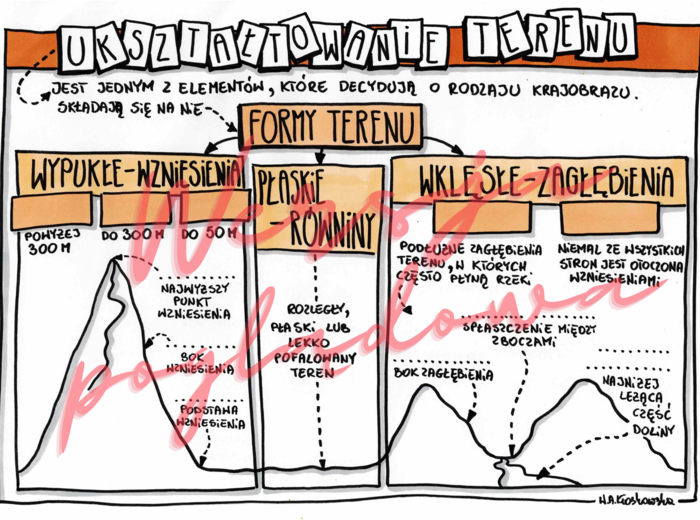 UKSZTAŁTOWANIE TERENU
JEST JEDNYM Z ELEMENTÓW, KTÓRE DECYDUJĄ O RODZAJU KRAJOBRAZU.
SKŁADAJĄ SIĘ NA NIE
FORMY TERENU
WYPUKŁE-WZNIESIENIA
POWYŻEJ
300 M
DO 300 M
DO 50 M
NAJWYŻSZY
PUNKT
WZNIESIENIA
BOK
WZNIESIENIA
PODSTAWA
WZNIESIENIA
PŁASKIE
-RÓWNINY
ROZLEGŁY,
PŁASKI LUB
LEKKO
POFALOWANY
TEREN
WKLĘSŁE-ZAGŁĘBIENIA
PODŁUŻNE ZAGŁĘBIENIA
TERENU, W KTÓRYCH
CZĘSTO PŁYNĄ RZEKI
NIEMAL ZE WSZYSTKICH
STRON JEST OTOCZONA
WZNIESIENIAMI
SPŁASZCZENIE MIĘDZY
ZBOCZAMI
BOK ZAGŁĘBIENIA
NAJNIŻEJ
LEŻĄCA
CZĘŚĆ
DOLINY
Wersja
poglądowa